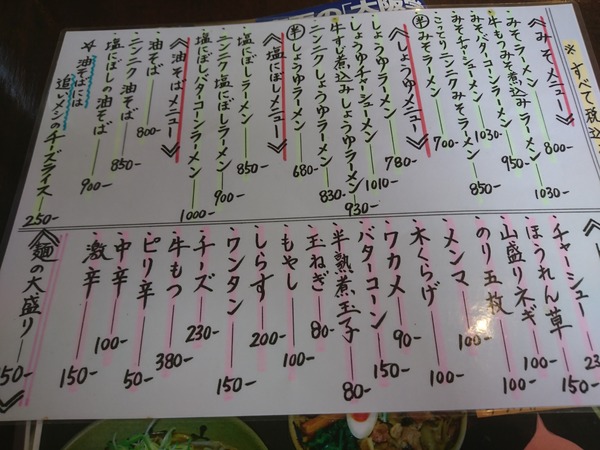 の「大阪
※すべて税込
《みそメニュー》
みそラーメン 800-
牛もつみそ煮込みラーメン 1030-
みそバターコーンラーメン 950-
みそチャーシューメン 1030-
こってりニンニクみそラーメン 850-
半みそラーメン 700-
《しょうゆメニュー》
しょうゆラーメン 780-
しょうゆチャーシューメン 1010-
牛すじ煮込みしょうゆラーメン 930-
ニンニクしょうゆラーメン 830-
半しょうゆラーメン 680-
《塩にぼしメニュー》
塩にぼしラーメン 850-
ニンニク塩にぼしラーメン 900-
塩にぼしバターコーンラーメン 1000-
《油そばメニュー》
油そば 800-
ニンニク油そば 850-
塩にぼしの油そば 900-
※油そばには
追いメシのチーズライス 250-
チャーシュー 23
ほうれん草 150-
山盛りネギ 100-
のり五枚 100-
メンマ 100-
木くらげ 100-
ワカメ 90-
バターコーン 150-
半熟煮玉子 80-
玉ねぎ 80-
もやし 100-
しらす 200-
ワンタン 150-
チーズ 230-
牛もつ 380-
ピリ辛 50-
中辛 100-
激辛 150-
《麺の大盛り 50-》